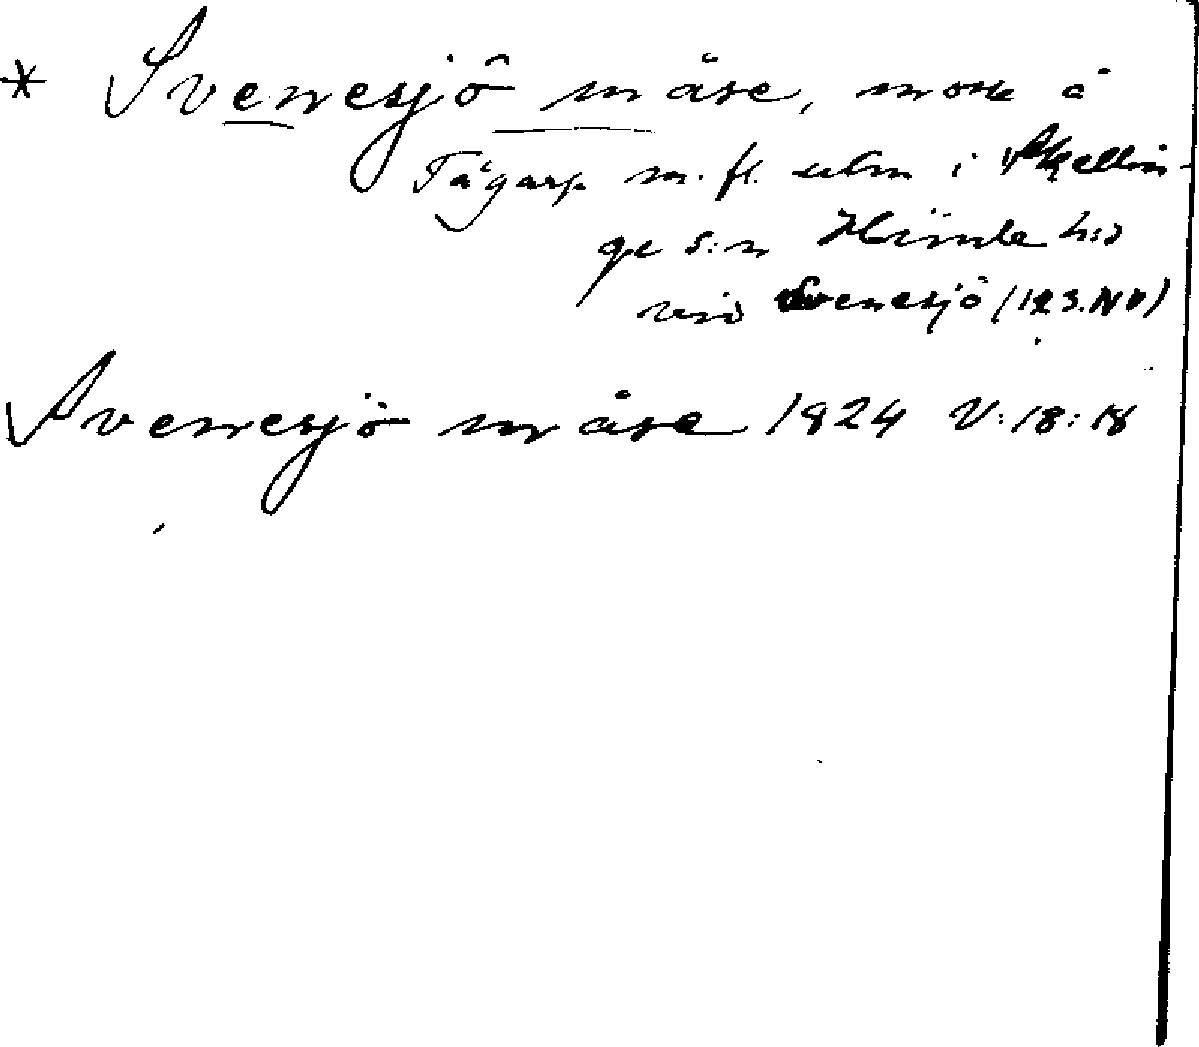 * Svenesjö måse, mosse å
Tågarp m. fl. utm i Skellin-
ge s:n Himle h:d
vid Svenesjö (123.NV)
Svenesjö måse 1824 V:18:18